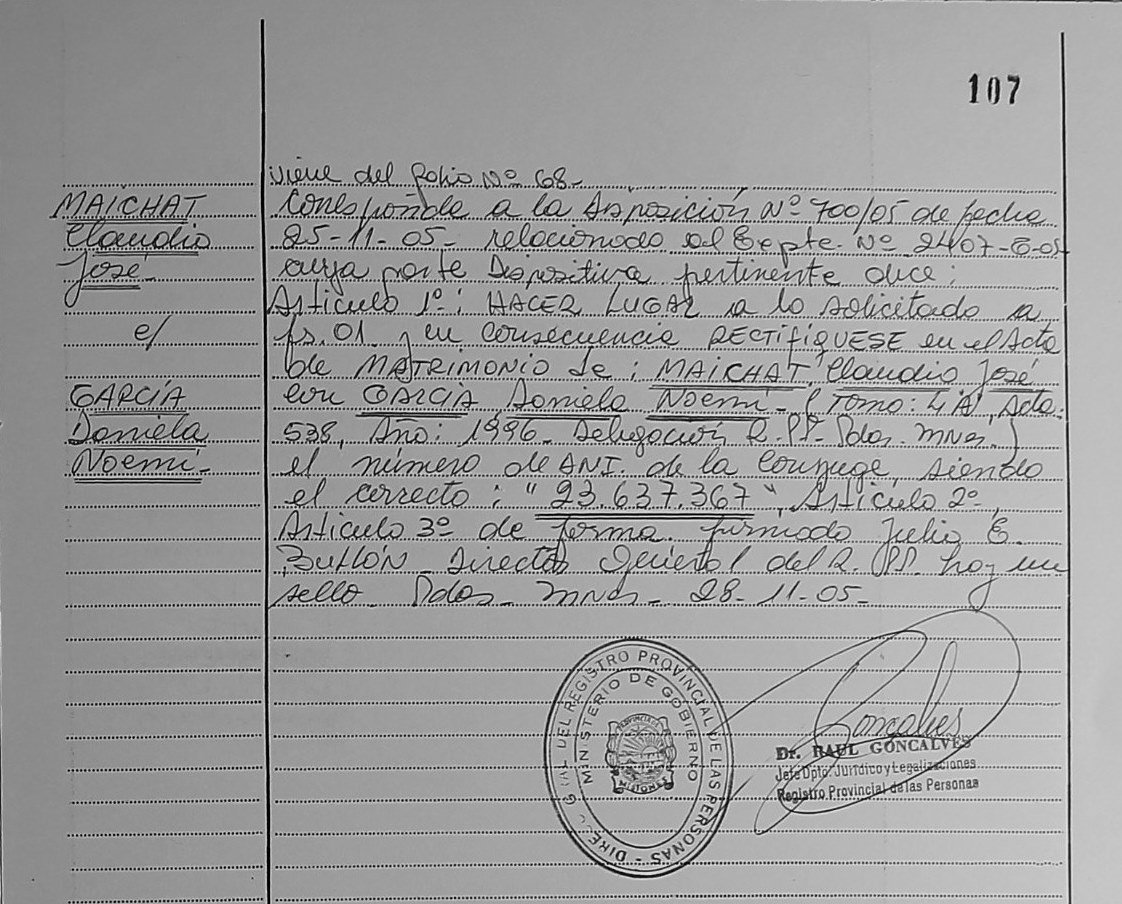 107
Viene del folio Nº 68-
MAICHAT
Claudio
José-
c/
GARCÍA
Daniela
Noemí-
Corresponde a la Disposición Nº 700/05 de fecha
25-11-05- relacionado al Expte. Nº 2407-E-05
cuya parte Dispositiva pertinente dice:
Artículo 1º: HACER LUGAR a lo solicitado a
fs. 01 y en consecuencia RECTIFÍQUESE en el Acta
de MATRIMONIO de: MAICHAT Claudio José
con GARCÍA Daniela Noemí- (Tomo: 4"A", Acta:
538, Año: 1996- Delegación R.PP- Pdas. Mnes.)
el número de DNI. de la Conyuge, siendo
el correcto: "23.637.367", Artículo 2º,
Artículo 3º de forma. firmado Julio E.
Director General del R. PP. hay un
sello- Pdas- Mnes- 28-11-05-
DIREC. G AL DEL REGISTRO PROVINCIAL DE LAS PERSONAS -
MINISTERIO DE GOBIERNO
PROVINCIA DE
MISIONES
Goncalves
Dr. RAUL GONCALVES
Jefe Dpto. Jurídico y Legalizaciones
Registro Provincial de las Personas